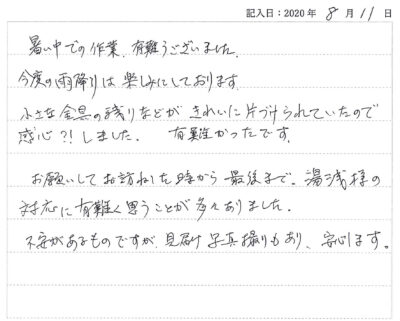 記入日：2020年 8月11日
暑い中での作業、有難うございました。
今度の雨降りは楽しみにしております。
小さな金具の残りなどがきれいに片づけられていたので
感心?!しました。 有難かったです。
お願いしてお訪ねした時から最後まで、湯浅様の
対応に有難く思うことが多々ありました。
不安があるものですが、見届け写真撮りもあり、安心します。